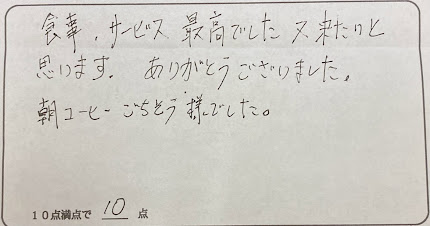 食事、サービス 最高でした 又来たいと
思います。 ありがとうございました。
朝コーヒーごちそう様でした。
10点満点で 10 点